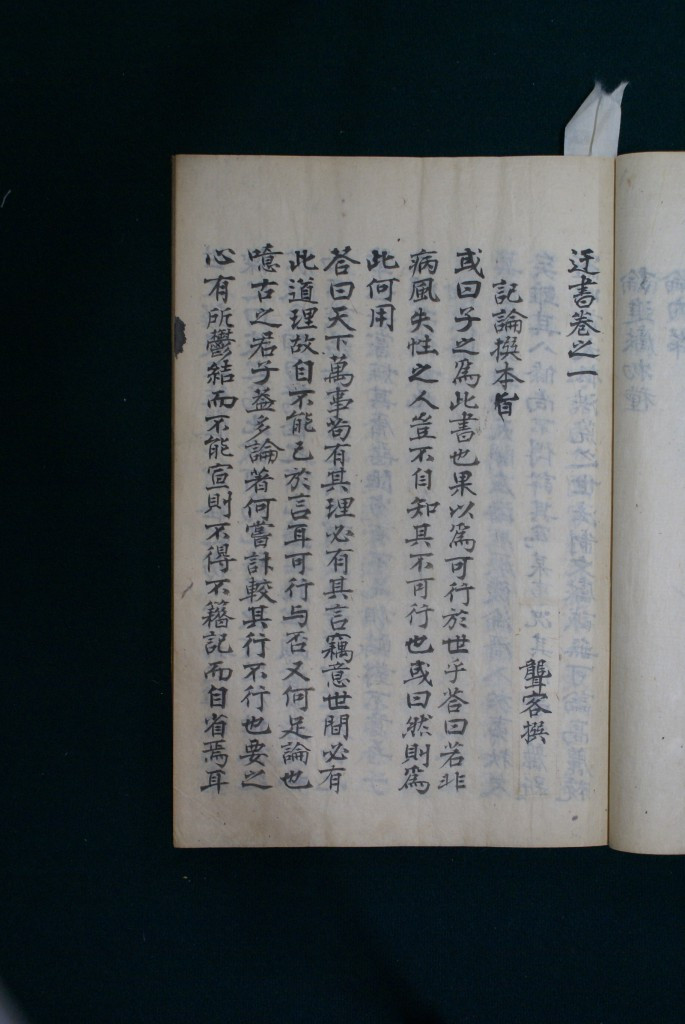 迂書卷之一
聾客撰
記論撰本旨
或曰子之爲此書也果以爲可行於世乎答曰若非
病風失性之人豈不自知其不可行也或曰然則爲
此何用
答曰天下萬事苟有其理必有其言竊意世間必有
此道理故自不能已於言耳可行与否又何足論也
噫古之君子益多論著何嘗計較其行不行也要之
心有所鬱結而不能宣則不得不籍記而自省焉耳